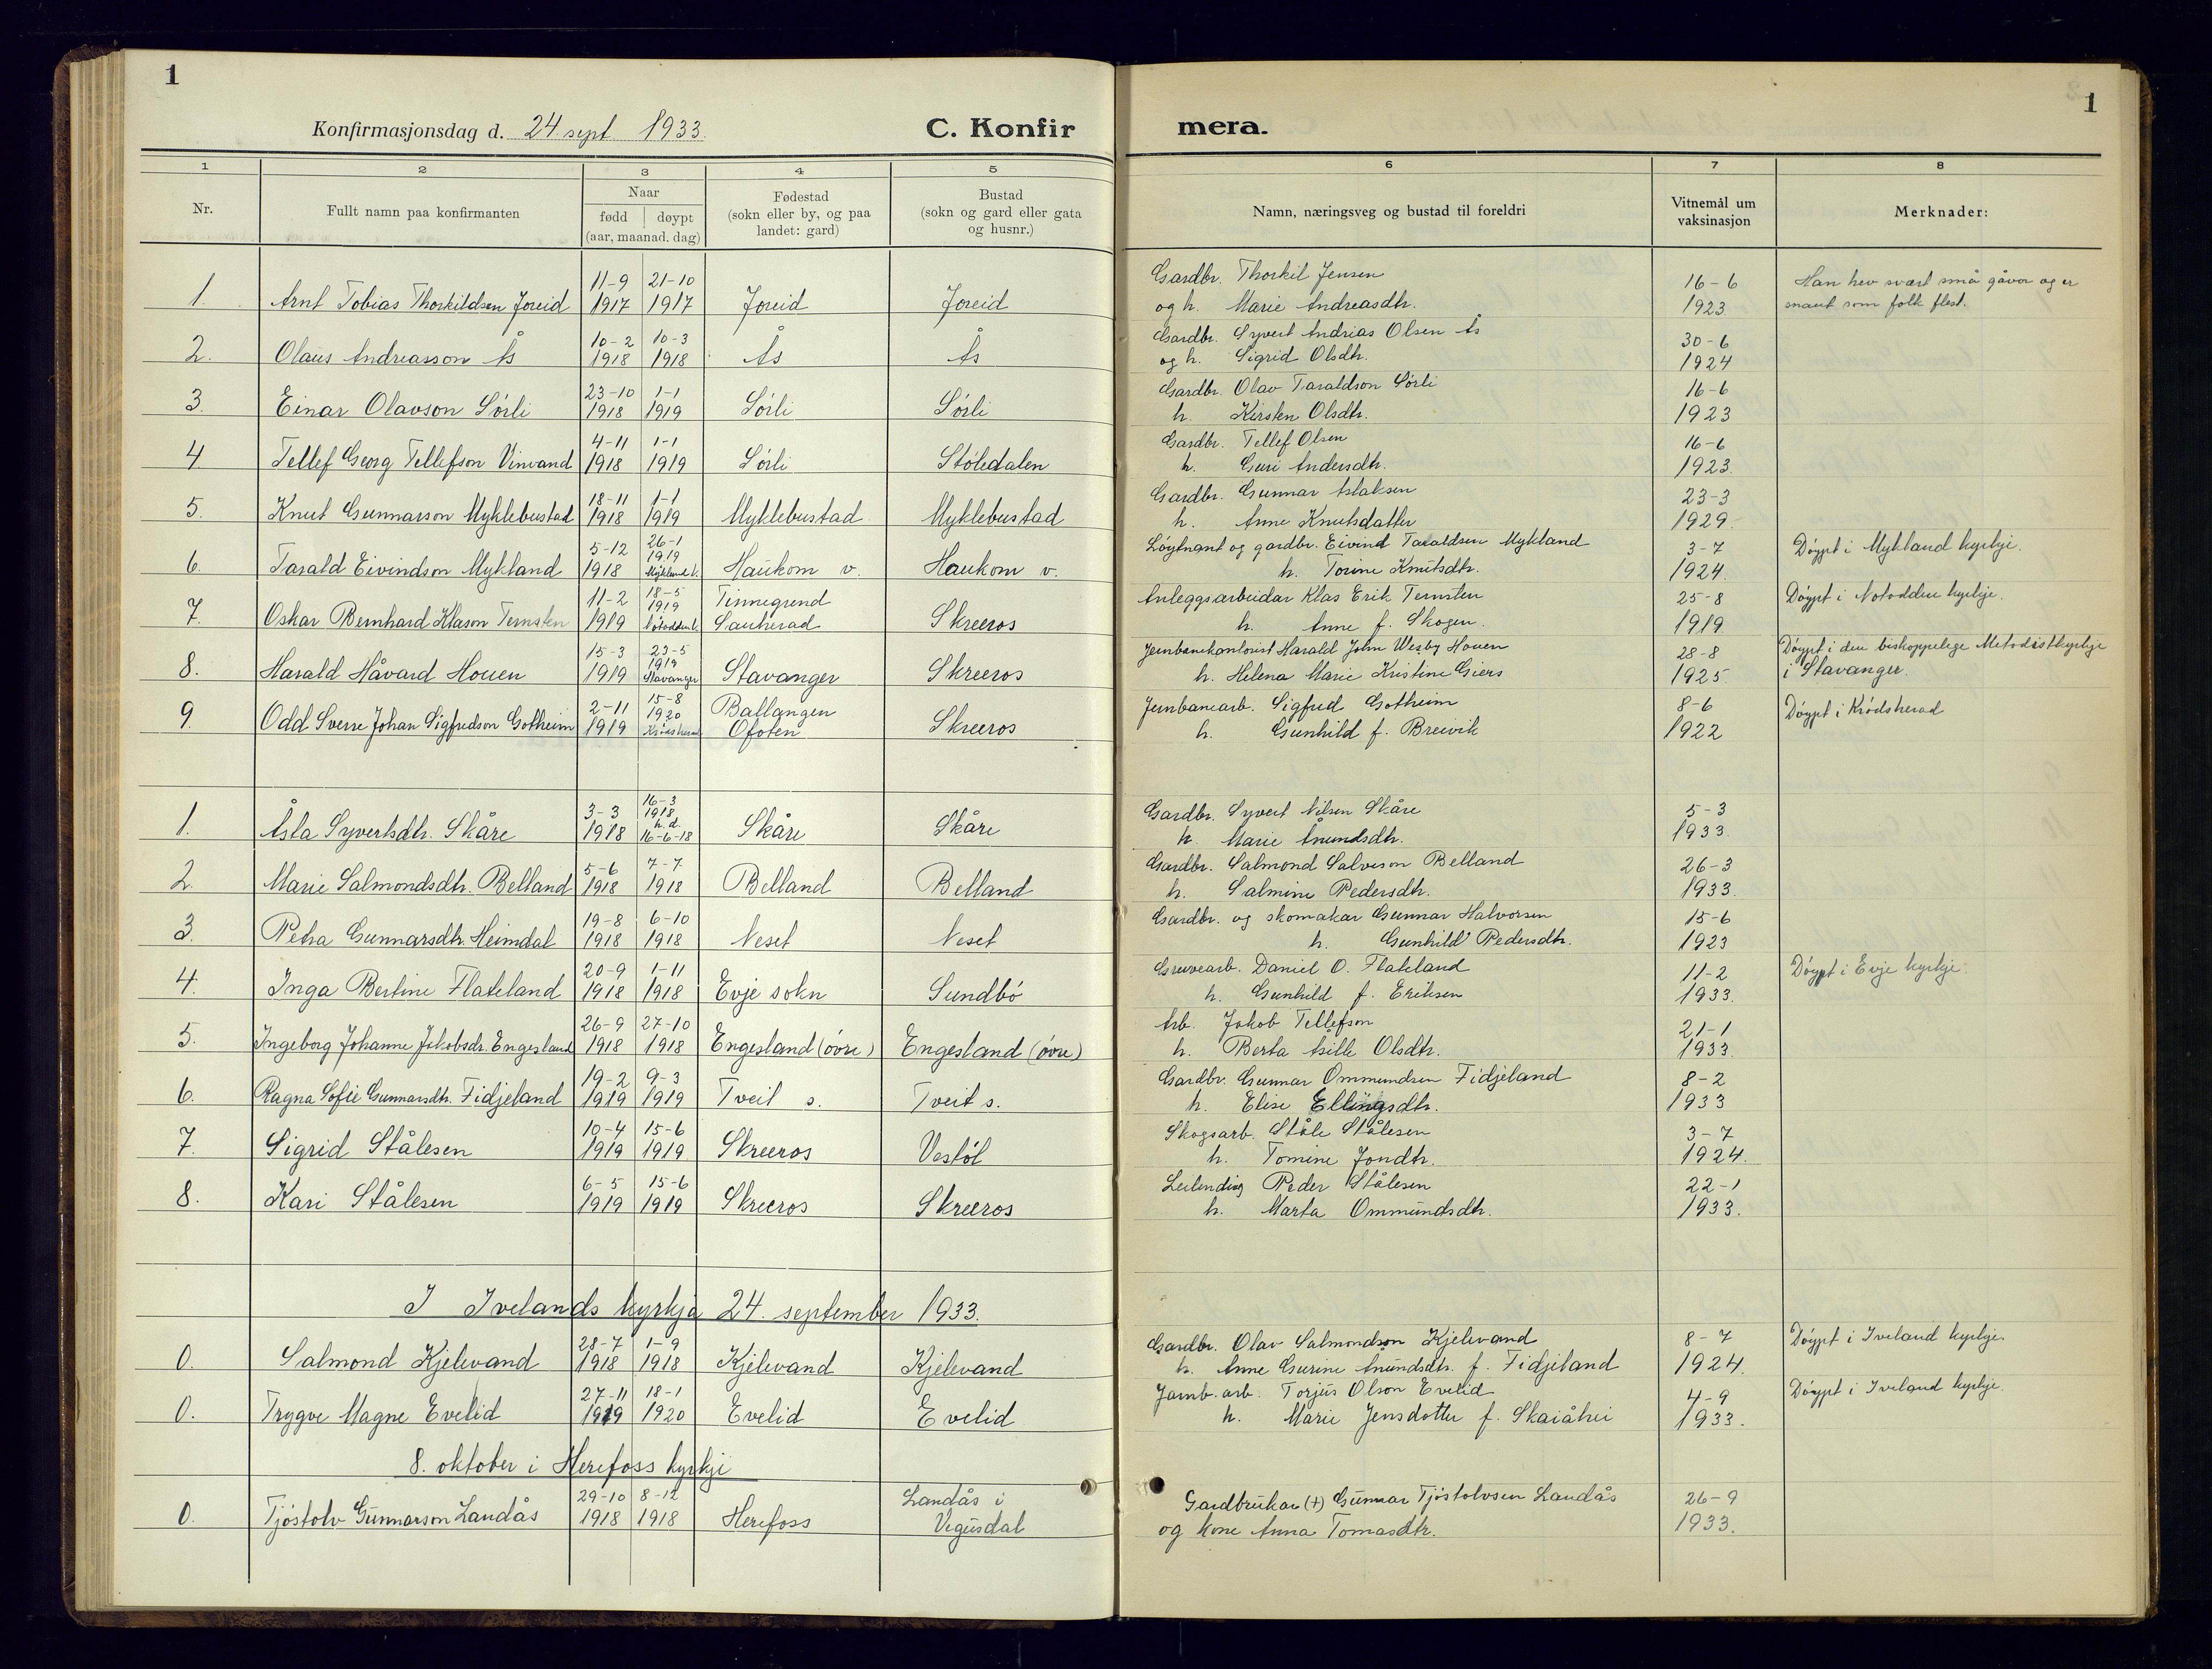 1
Konfirmasjonsdag d. 24 sept. 1933.
C. Konfir
mera.
1
1 2 3 4 5 6 7 8
Nr.
Fullt namn paa konfirmanten
Naar
fødd døypt
(aar, maanad, dag)
Fødestad
(sokn eller by, og paa
landet: gard)
Bustad
(sokn og gard eller gata
og husnr.)
Namn, næringsveg og bustad til foreldri
Vitnemål um
vaksinasjon
Merknader:
11-9 21-10 Gardbr. Thorkil Jensen 16-6 Han hev svært små gåvor og er
1. Arnt Tobias Thorkildsen Joreid 1917 1917 Joreid Joreid og h. Marie Andreasdtr. 1923 snaut som folk flest.
10-2 10-3 Gardbr. Syvert Andrias Olsen Ås 30-6
2. Olaus Andreasson Ås 1918 1918 Ås Ås og h. Sigrid Olsdtr. 1924
23-10 1-1 Gardbr. Olav Taraldson Sørli 16-6
3. Einar Olavson Sørli 1918 1919 Sørli Sørli h. Kirsten Olsdtr. 1923
4-11 1-1 Gardbr. Tellef Olsen 16-6
4. Tellef Georg Tellefson Vinvand 1918 1919 Sørli Støledalen h. Guri Andersdtr. 1923.
18-11 1-1 Gardbr. Gunnar Aslaksen 23-3
5. Knut Gunnarson Myklebustad 1918 1919 Myklebustad Myklebustad h. Anne Knutsdatter 1929.
5-12 26-1 1919 Løytnant og gardbr. Eivind Taraldsen Mykland 3-7 Døypt i Mykland kyrkje.
6. Tarald Eivindson Mykland 1918 Mykland k. Haukom v. Haukom v. h. Torine Knutsdtr. 1924.
11-2 18-5 1919 Tinnegrend Anleggsarbeidar Klas Erik Ternsten 25-8 Døypt i Notodden kyrkje.
7. Oskar Bernhard Klason Ternsten 1919 Notodden k. Sauherad Skreros h. Anne f. Skogen. 1919.
15-3 23-5 1919 Jernbanekontorist Harald John Wesby Houen 28-8 Døypt i den biskoppelege Metodistkyrkje
8. Harald Håvard Houen 1919 Stavanger Stavanger Skreros h. Helena Marie Kristine Giers 1925. i Stavanger.
2-11 15-8 1920 Ballangen Jernbanearb. Sigfred Gotheim 8-6 Døypt i Krødsherad
9. Odd Sverre Johan Sigfredson Gotheim 1919 Krødsherad Ofoten Skreros h. Gunhild f. Breivik 1922
3-3 16-3 1918 h.d. Gardbr. Syvert Nilsen Skåre 5-3
1. Åsta Syvertsdtr. Skåre 1918 16-6-18 Skåre Skåre h. Marie Ånundsdtr. 1933.
5-6 7-7 Gardbr. Salmond Salveson Belland 26-3
2. Marie Salmondsdtr. Belland 1918 1918 Belland Belland h. Salmine Pedersdtr. 1933.
19-8 6-10 Gardbr. og skomakar Gunnar Halvorsen 15-6
3. Petra Gunnarsdtr. Heimdal 1918 1918 Neset Neset h. Gunhild Pedersdtr. 1923
20-9 1-11 Gruvearb. Daniel O. Flateland 11-2 Døypt i Evje kyrkje.
4. Inga Bertine Flateland 1918 1918 Evje sokn Sundbø h. Gunhild f. Eriksen 1933.
26-9 27-10 Arb. Jakob Tellefson 21-1
5. Ingeborg Johanne Jakobsdr. Engesland 1918 1918 Engesland (øvre) Engesland (øvre) h. Berta Åsille Olsdtr. 1933.
19-2 9-3 Gardbr. Gunnar Ommundsen Fidjeland 8-2
6. Ragna Sofie Gunnarsdtr. Fidjeland 1919 1919 Tveit s. Tveit s. h. Elise Ellingsdtr. 1933
10-4 15-6 Skogsarb. Ståle Stålesen 3-7
7. Sigrid Stålesen 1919 1919 Skreros Vestøl h. Tomine Jondtr. 1924.
6-5 15-6 Leilending Peder Stålesen 22-1
8. Kari Stålesen 1919 1919 Skreros Skreros h. Marta Ommundsdtr. 1933.
I Ivelands kyrkja 24. september 1933.
28-7 1-9 Gardbr. Olav Salmondson Kjelevand 8-7 Døypt i Iveland kyrkje.
0. Salmond Kjelevand 1918 1918 Kjelevand Kjelevand h. Anne Gurine Ånundsdtr. f. Fidjeland 1924.
27-11 18-1 Jarnb.arb. Torjus Olson Evelid 4-9 Døypt i Iveland kyrkje.
0. Trygve Magne Evelid 1919 1920 Evelid Evelid h. Marie Jensdotter f. Skaiåhei 1933.
8. oktober i Herefoss kyrkje
29-10 8-12 Landås i Gardbrukar (+) Gunnar Tjøstolvsen Landås 26-9
0. Tjøstolv Gunnarson Landås 1918 1918 Herefoss Vegusdal og kone Anna Tomasdtr. 1933.